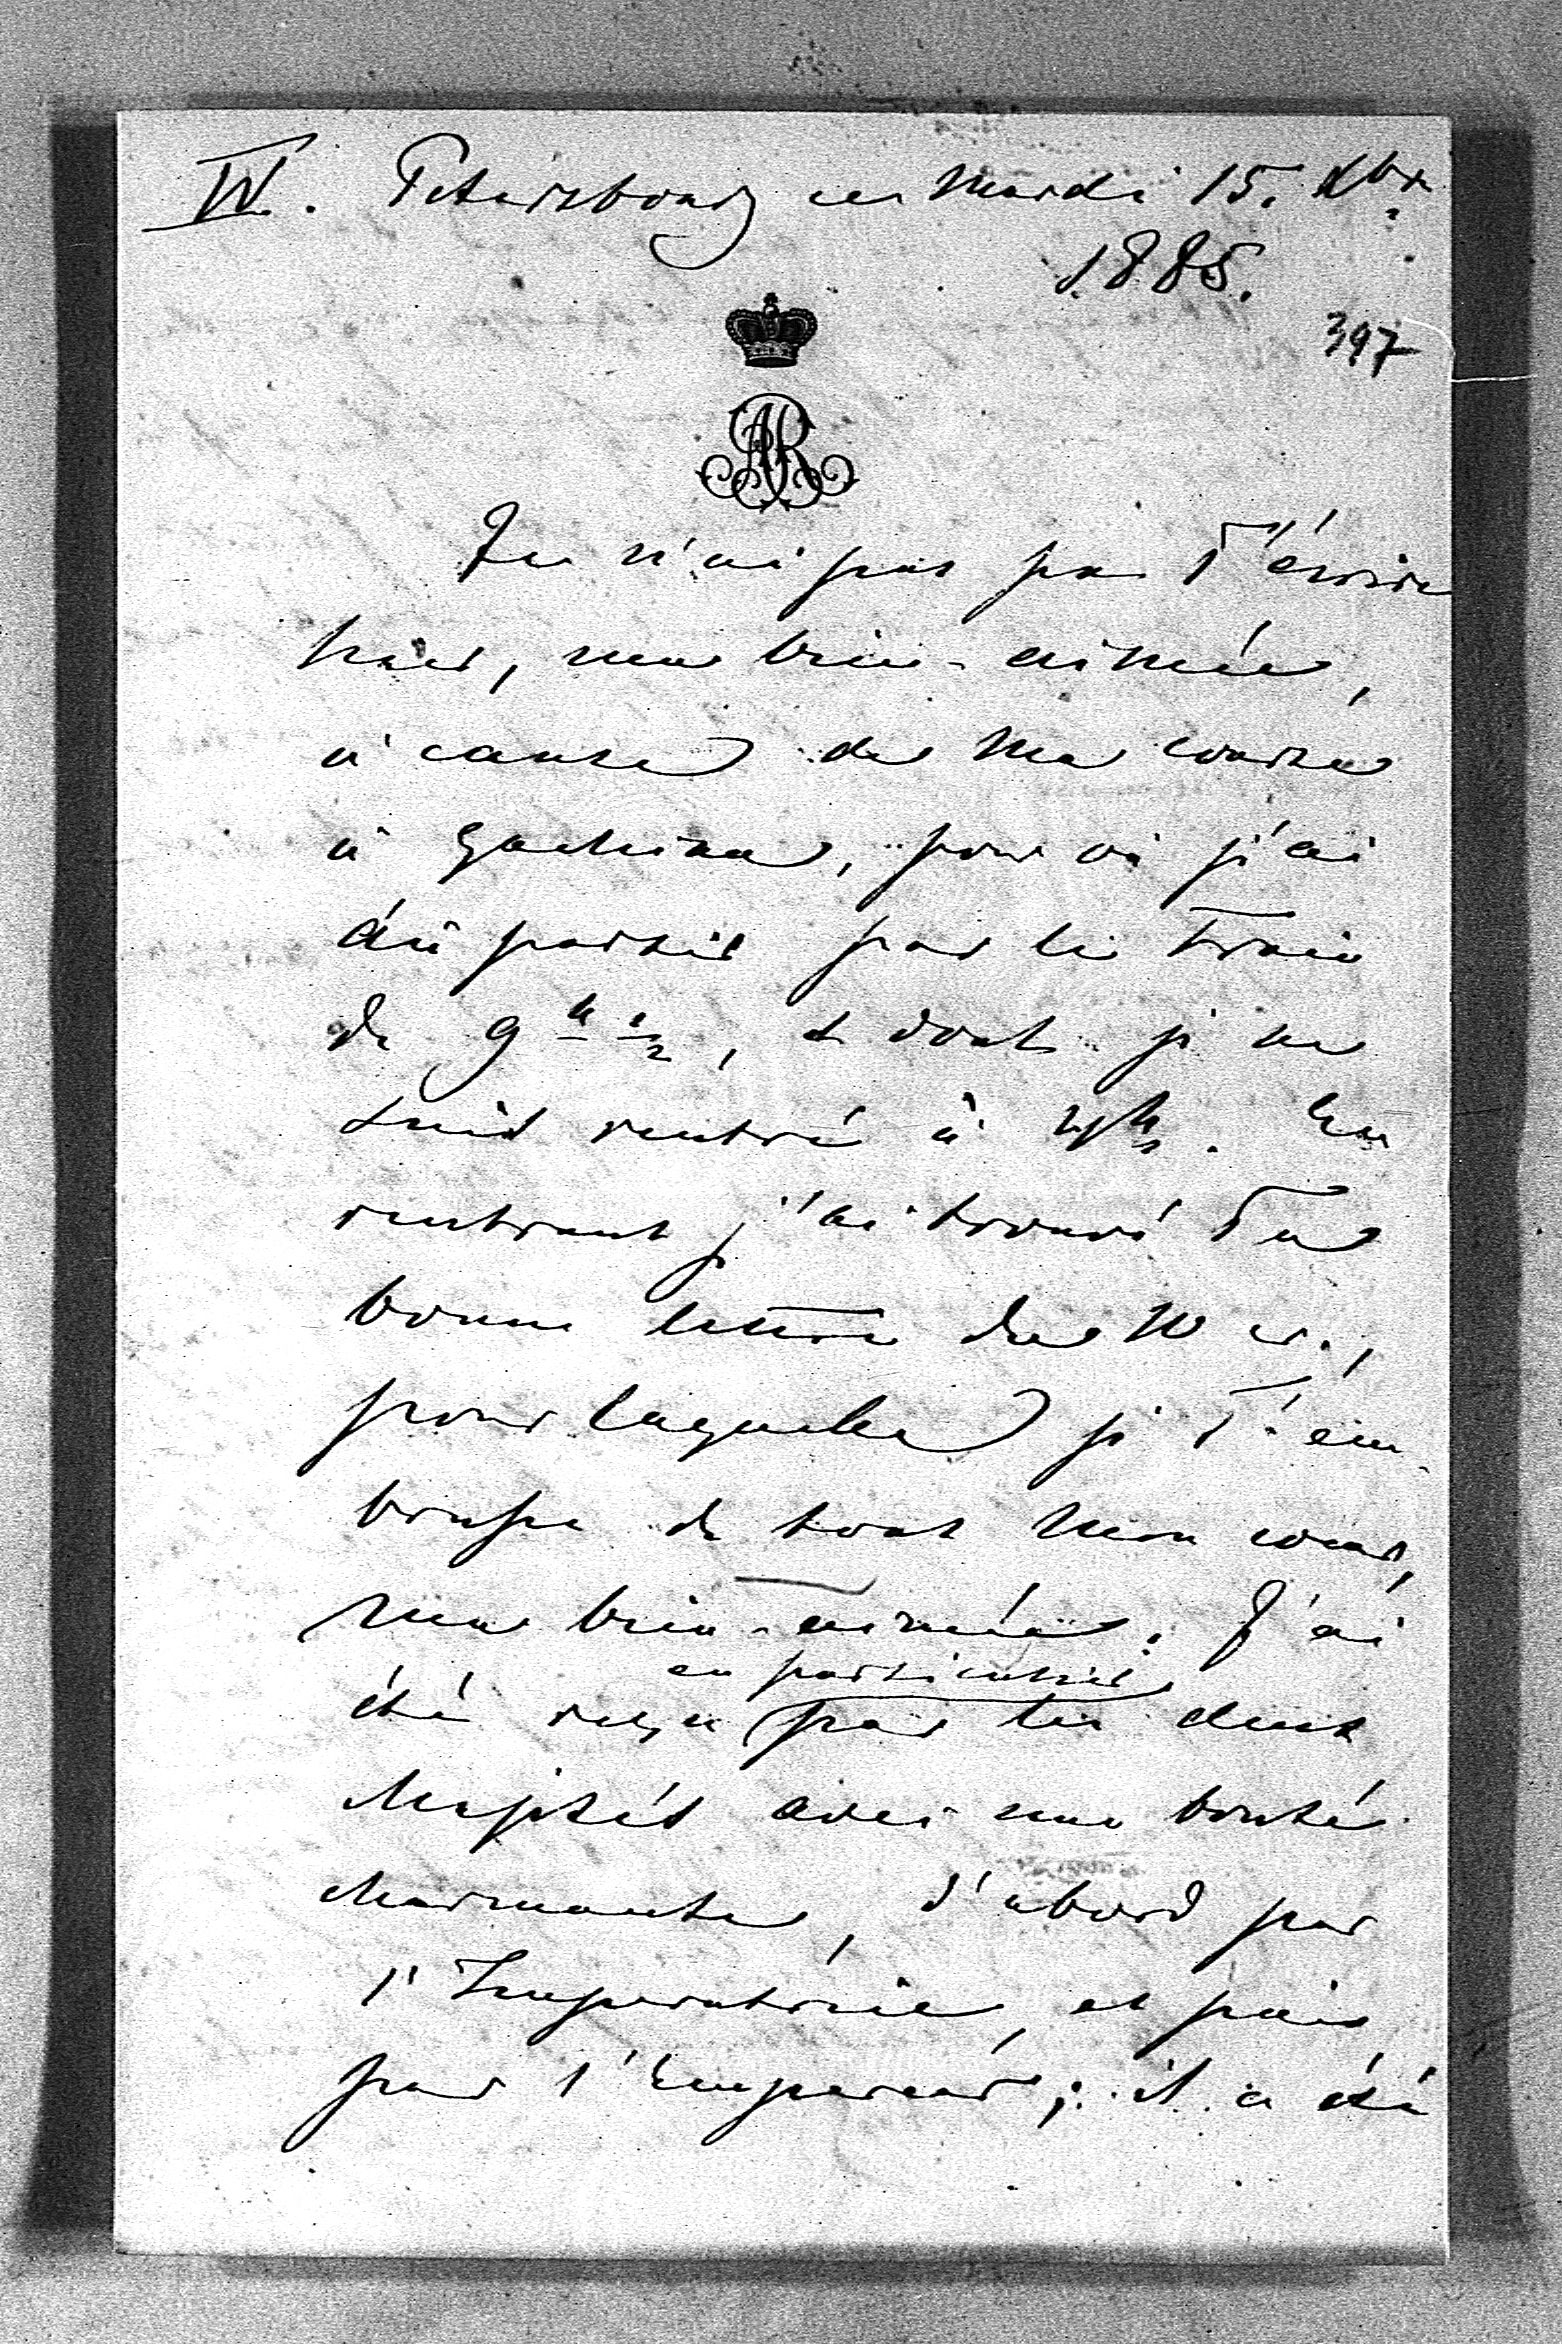 IV. Pétersbourg ce Mardi 15. Xbr.
1885.
397
AR
Je n'ai pas pu T'écrire
hier, ma bien-aimée,
à cause de ma course
à Gatchina, pour où j'ai
dû partir par le train
de 9 h ½, et dont je ne
suis rentré à 4 h. En
rentrant j'ai trouvé Ta
bonne lettre du 10 cr.,
pour laquelle je T'em-
brasse de tout mon cœur,
ma bien-aimée. J'ai
en particulier
été reçu par les deux
Majestés avec une bonté
charmante, d'abord par
l'Impératrice, et puis
par l'Empereur; il a été